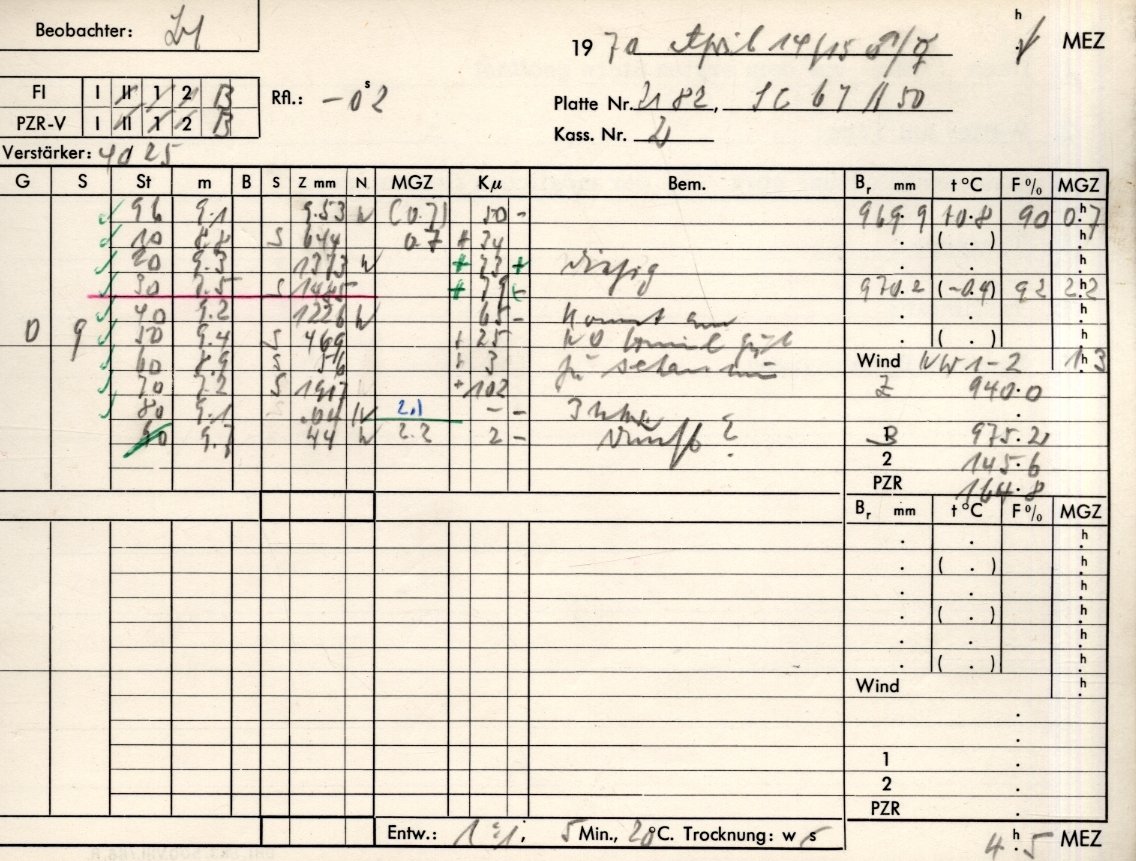 Beobachter:
1970 April 14/15 ♂/☿ h MEZ
FI I II 1 2 B
Rfl.: -0ˢ2
Platte Nr. 2182, SC 67 / 150
PZR-V I II 1 2 B
Kass. Nr. 2
Verstärker: 4025
G S St m B S Z mm N MGZ Kμ Bem. Br mm t °C F % MGZ
96 9.1 9.53 W (0.7) 50 - 969.9 +0.8 90 0.7
10 8.8 S 644 0.7 + 34 ( . ) h
20 9.3 1373 W + 73 + diesig
30 7.5 S 1445 + 79 - 970.2 (-0.4) 92 2.2
40 9.2 1226 W 65 - Kommt
0 9 50 9.4 S 469 + 25
60 8.9 S 56 + 3 Wind NW 1-2 1.3
70 7.2 S 1917 + 102 Z 940.0
80 9.1 .04 W 2.1 - -
90 9.7 44 W 2.2 2 - Dunst? B 975.2
2 145.6
PZR 164.8
Br mm t °C F % MGZ
. . h
. ( . ) h
. h
. ( . ) h
. h
. ( . ) h
Wind h
1 .
2 .
PZR .
Entw.: 1 : 1; 5 Min., 20 °C. Trocknung: w s
4 h 5 MEZ